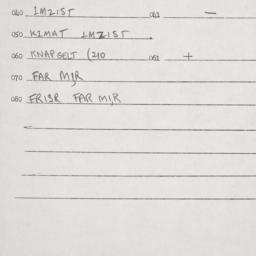 040 IMZIST 041 —
050 KIMAT IMZIST
060 KNAPGELT (210 061 +
070 FAR MIR
080 FRIER FAR MIR